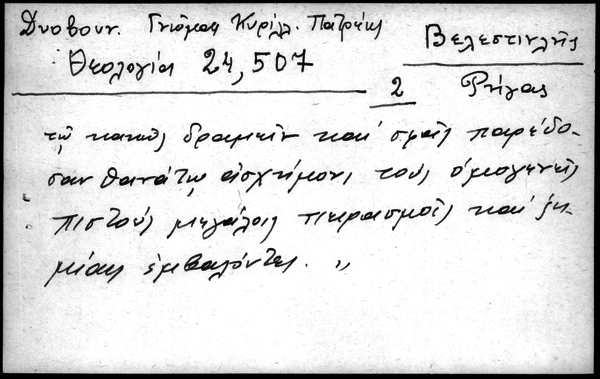 Δυοβουν. Γνώμαι Κυρίλλ. Πατρέως
Θεολογία 24,507
Βελεστινλῆς
2 Ρήγας
τῷ κακῶς δραμεῖν καὶ σφᾶς παρέδο-
σαν θανάτῳ αἰσχήμονι, τοὺς ὁμογενεῖς
πιστοὺς μεγάλοις πειρασμοῖς καὶ ζη-
μίαις ἐμβαλόντες. „